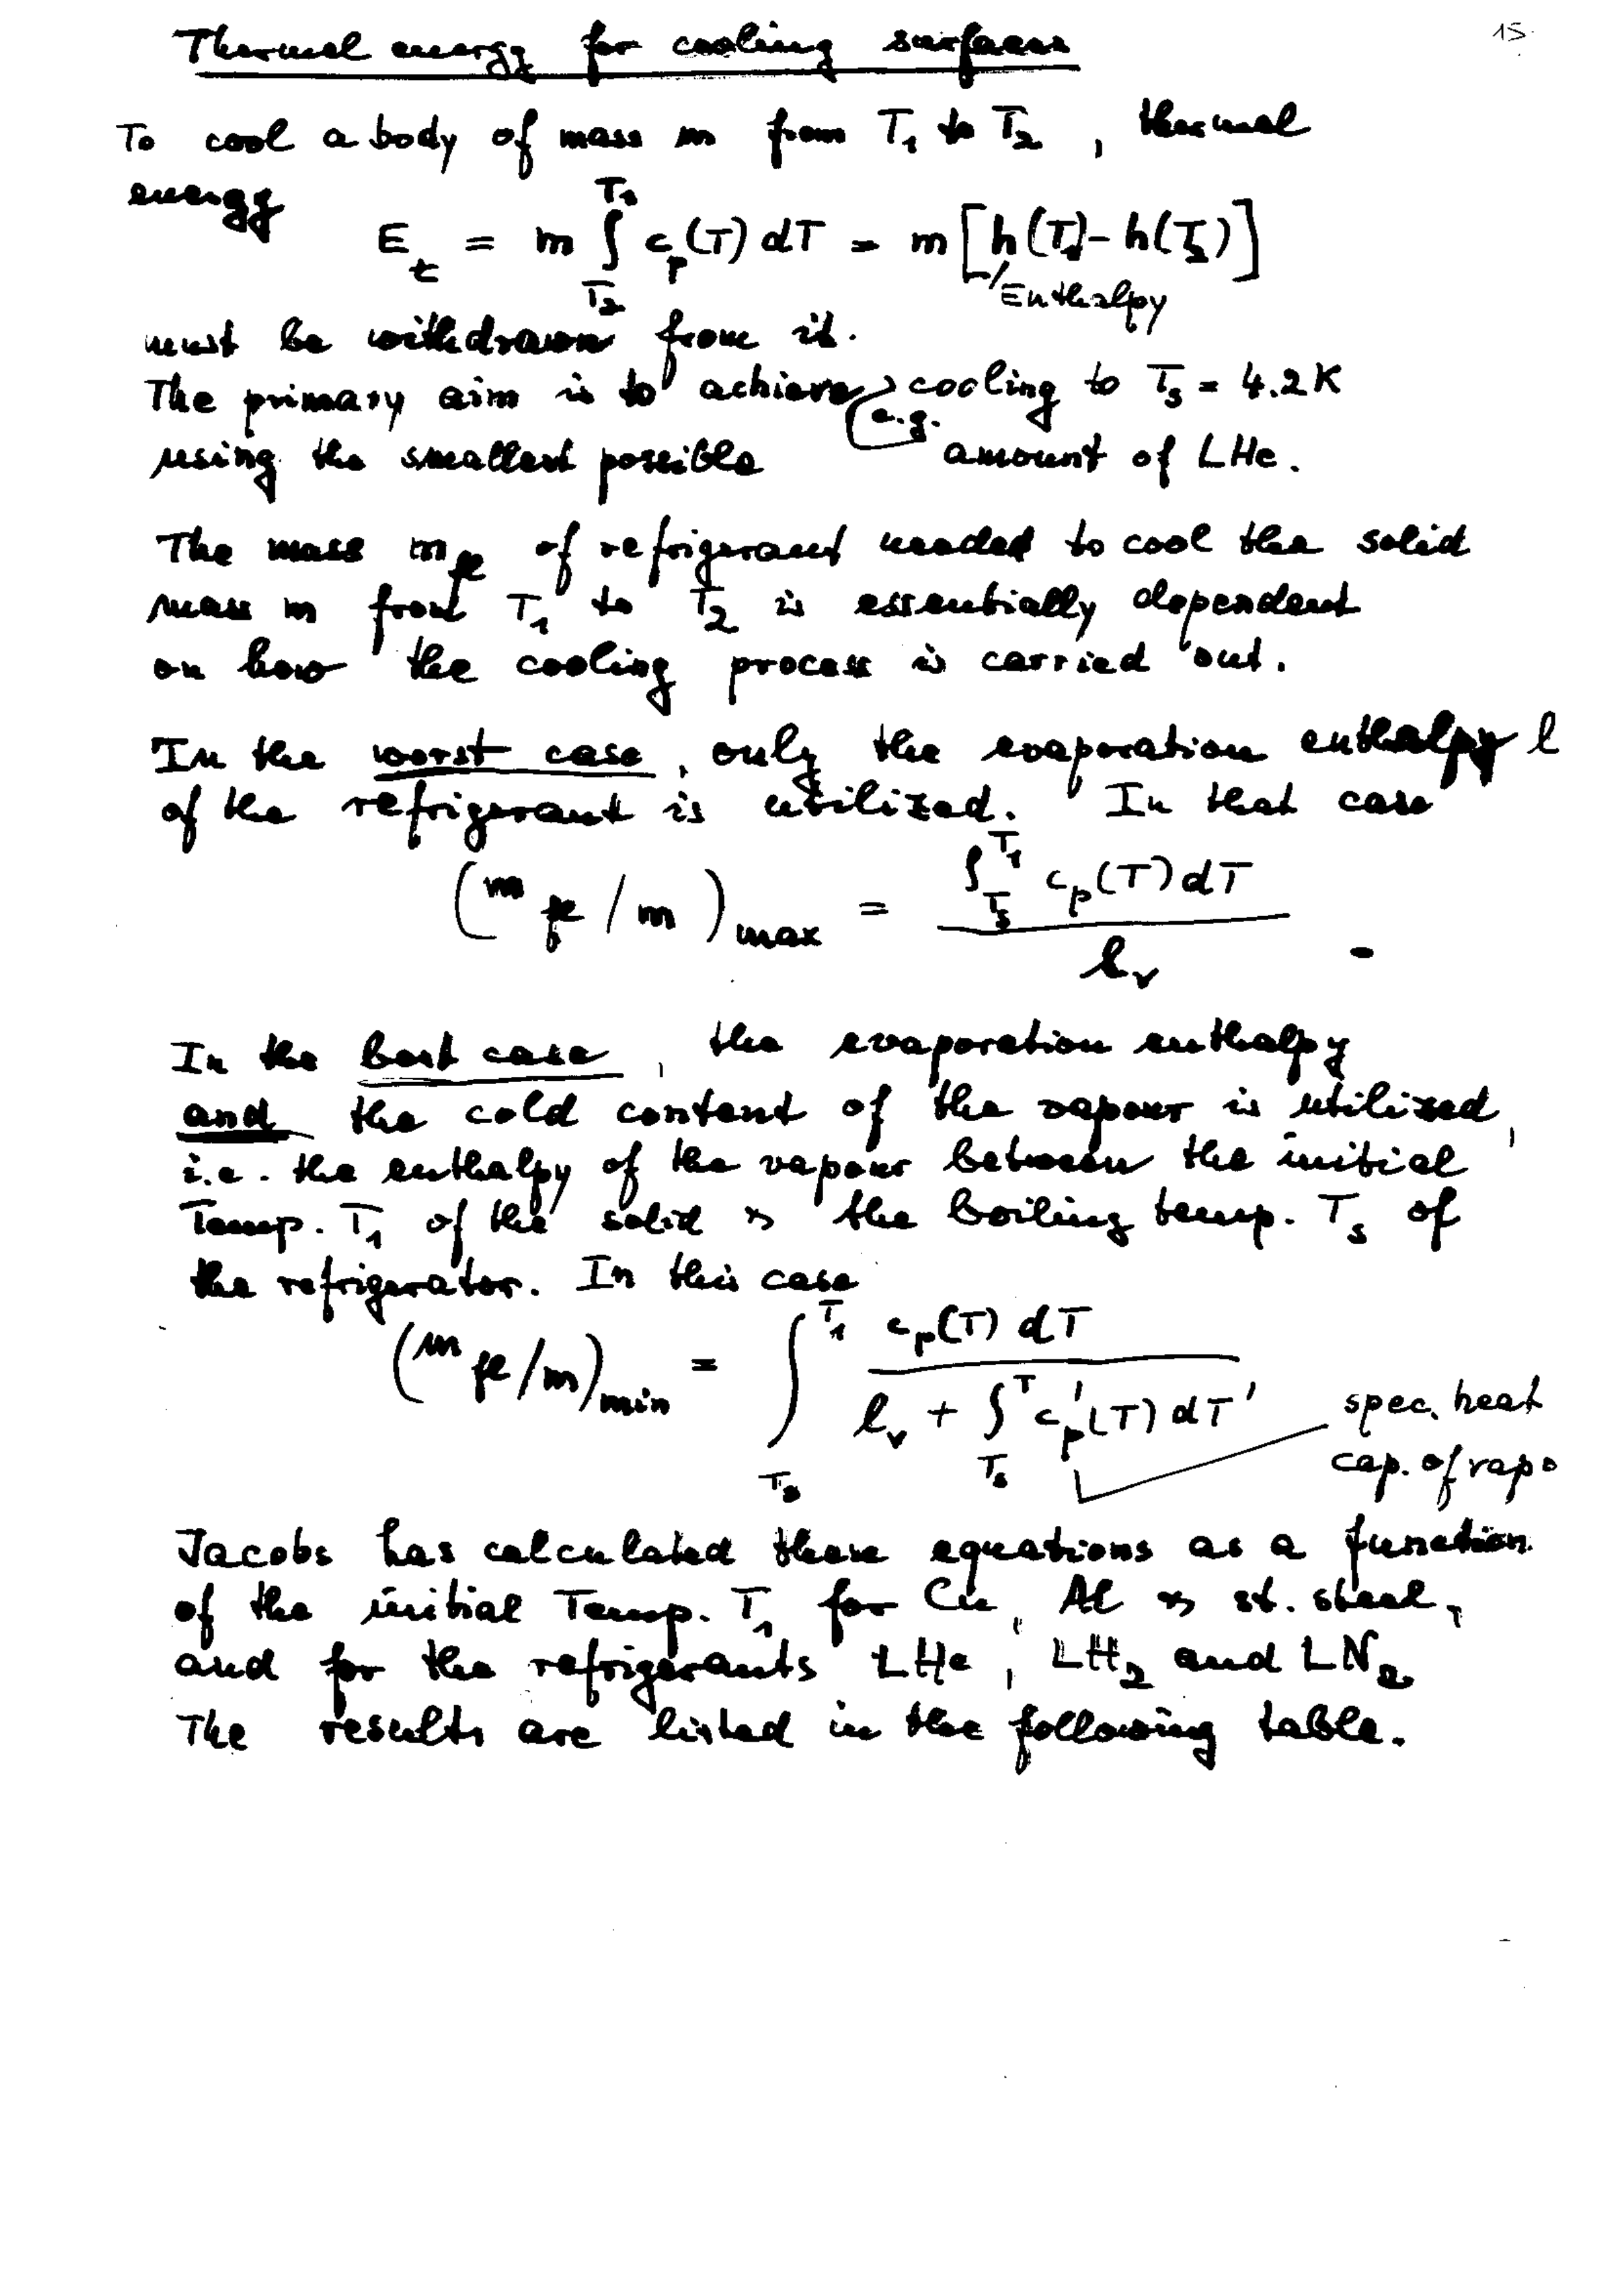 15.
Thermal energy for cooling surfaces
To cool a body of mass m from T₁ to T₂, thermal
energy
E_t = m ∫_{T₂}^{T₁} c_p(T) dT = m [h(T₁) - h(T₂)]
Enthalpy
must be withdrawn from it.
The primary aim is to achieve cooling to T_s = 4.2 K
(e.g.
using the smallest possible amount of LHe.
The mass m_fl of refrigerant needed to cool the solid
mass m from T₁ to T₂ is essentially dependent
on how the cooling process is carried out.
In the worst case, only the evaporation enthalpy l
of the refrigerant is utilized. In that case
(m_fl/m)_max = ∫_{T_s}^{T₁} c_p(T) dT / l_v .
In the best case, the evaporation enthalpy
and the cold content of the vapour is utilized,
i.e. the enthalpy of the vapour between the initial
Temp. T₁ of the solid & the boiling temp. T_s of
the refrigerator. In this case
(m_fl/m)_min = ∫_{T_s}^{T₁} c_p(T) dT / (l_v + ∫_{T_s}^{T} c_p'(T) dT')
spec. heat
cap. of vapo
Jacobs has calculated these equations as a function
of the initial Temp. T₁ for Cu, Al & st. steel,
and for the refrigerants LHe, LH₂ and LN₂.
The results are listed in the following table.